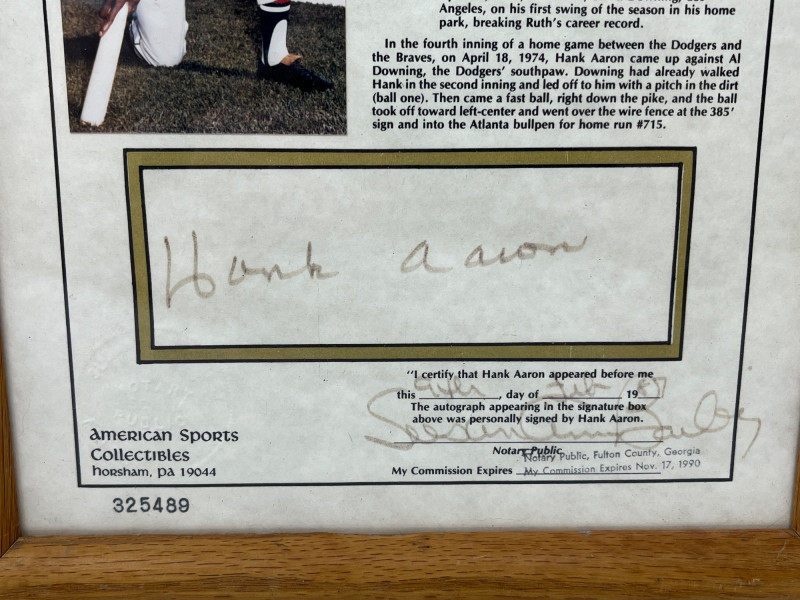 Angeles, on his first swing of the season in his home
park, breaking Ruth's career record.
In the fourth inning of a home game between the Dodgers and
the Braves, on April 18, 1974, Hank Aaron came up against Al
Downing, the Dodgers' southpaw. Downing had already walked
Hank in the second inning and led off to him with a pitch in the dirt
(ball one). Then came a fast ball, right down the pike, and the ball
took off toward left-center and went over the wire fence at the 385'
sign and into the Atlanta bullpen for home run #715.
Hank Aaron
"I certify that Hank Aaron appeared before me
this 9th, day of Feb 1987
The autograph appearing in the signature box
above was personally signed by Hank Aaron.
Notary Public
Notary Public, Fulton County, Georgia
My Commission Expires My Commission Expires Nov. 17, 1990
American Sports
Collectibles
Horsham, PA 19044
325489